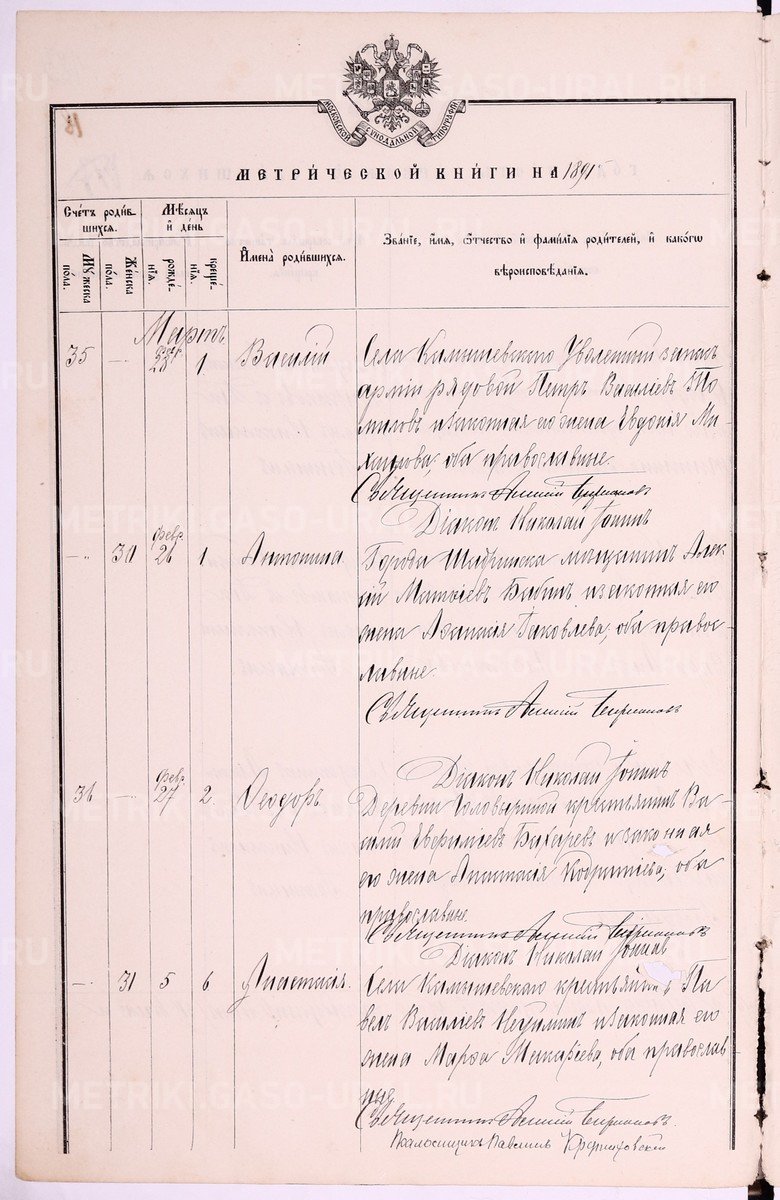 МОСКОВСКОЙ СѴНОДАЛЬНОЙ ТИПОГРАФІИ
МЕТРИ́ЧЕСКОЙ КНИ́ГИ НА 1891
Сче́тъ роди́в-
шихся.
Мꙋ́жеска
по́ла.
Же́нска
по́ла.
Мѣ́сяцъ
и҆ де́нь
рожде́-
нїѧ.
креще́-
нїѧ.
И҆мена̀ роди́вшихся.
Зва́нїе, и҆́мѧ, ѻ҆́тчество и҆ фами́лїѧ роди́телей, и҆ како́гѡ
вѣроисповѣ́данїѧ.
Мартъ
35 — 28 1 Василій
Села Камышевскаго Уволенный въ запасъ
арміи рядовой Петръ Васильевъ То-
миловъ и законная его жена Евдокія Ми-
хайлова; оба православные.
Священникъ Алексій
Діаконъ Николай Топинъ
— 30 Февр. 26 1 Антонина
Города Шадринска мѣщанинъ Алек-
сій Матѳіевъ Бабинъ и законная его
жена Аѳанасія Іаковлева; оба правос-
лавные.
Священникъ Алексій
Діаконъ Николай Топинъ
36 — Февр. 27 2 Ѳеодоръ
Деревни Головыриной крестьянинъ Ва-
силій Бахаревъ и законная
его жена Анастасія; оба
православные.
Священникъ Алексій
Діаконъ Николай Топинъ
— 31 5 6 Анастасія
Села Камышевскаго крестьянинъ Па-
велъ Василіевъ и законная его
жена Марѳа Макарьева, оба православ-
ные
Священникъ Алексій
Псаломщикъ
METRIKI.GASO-URAL.RU